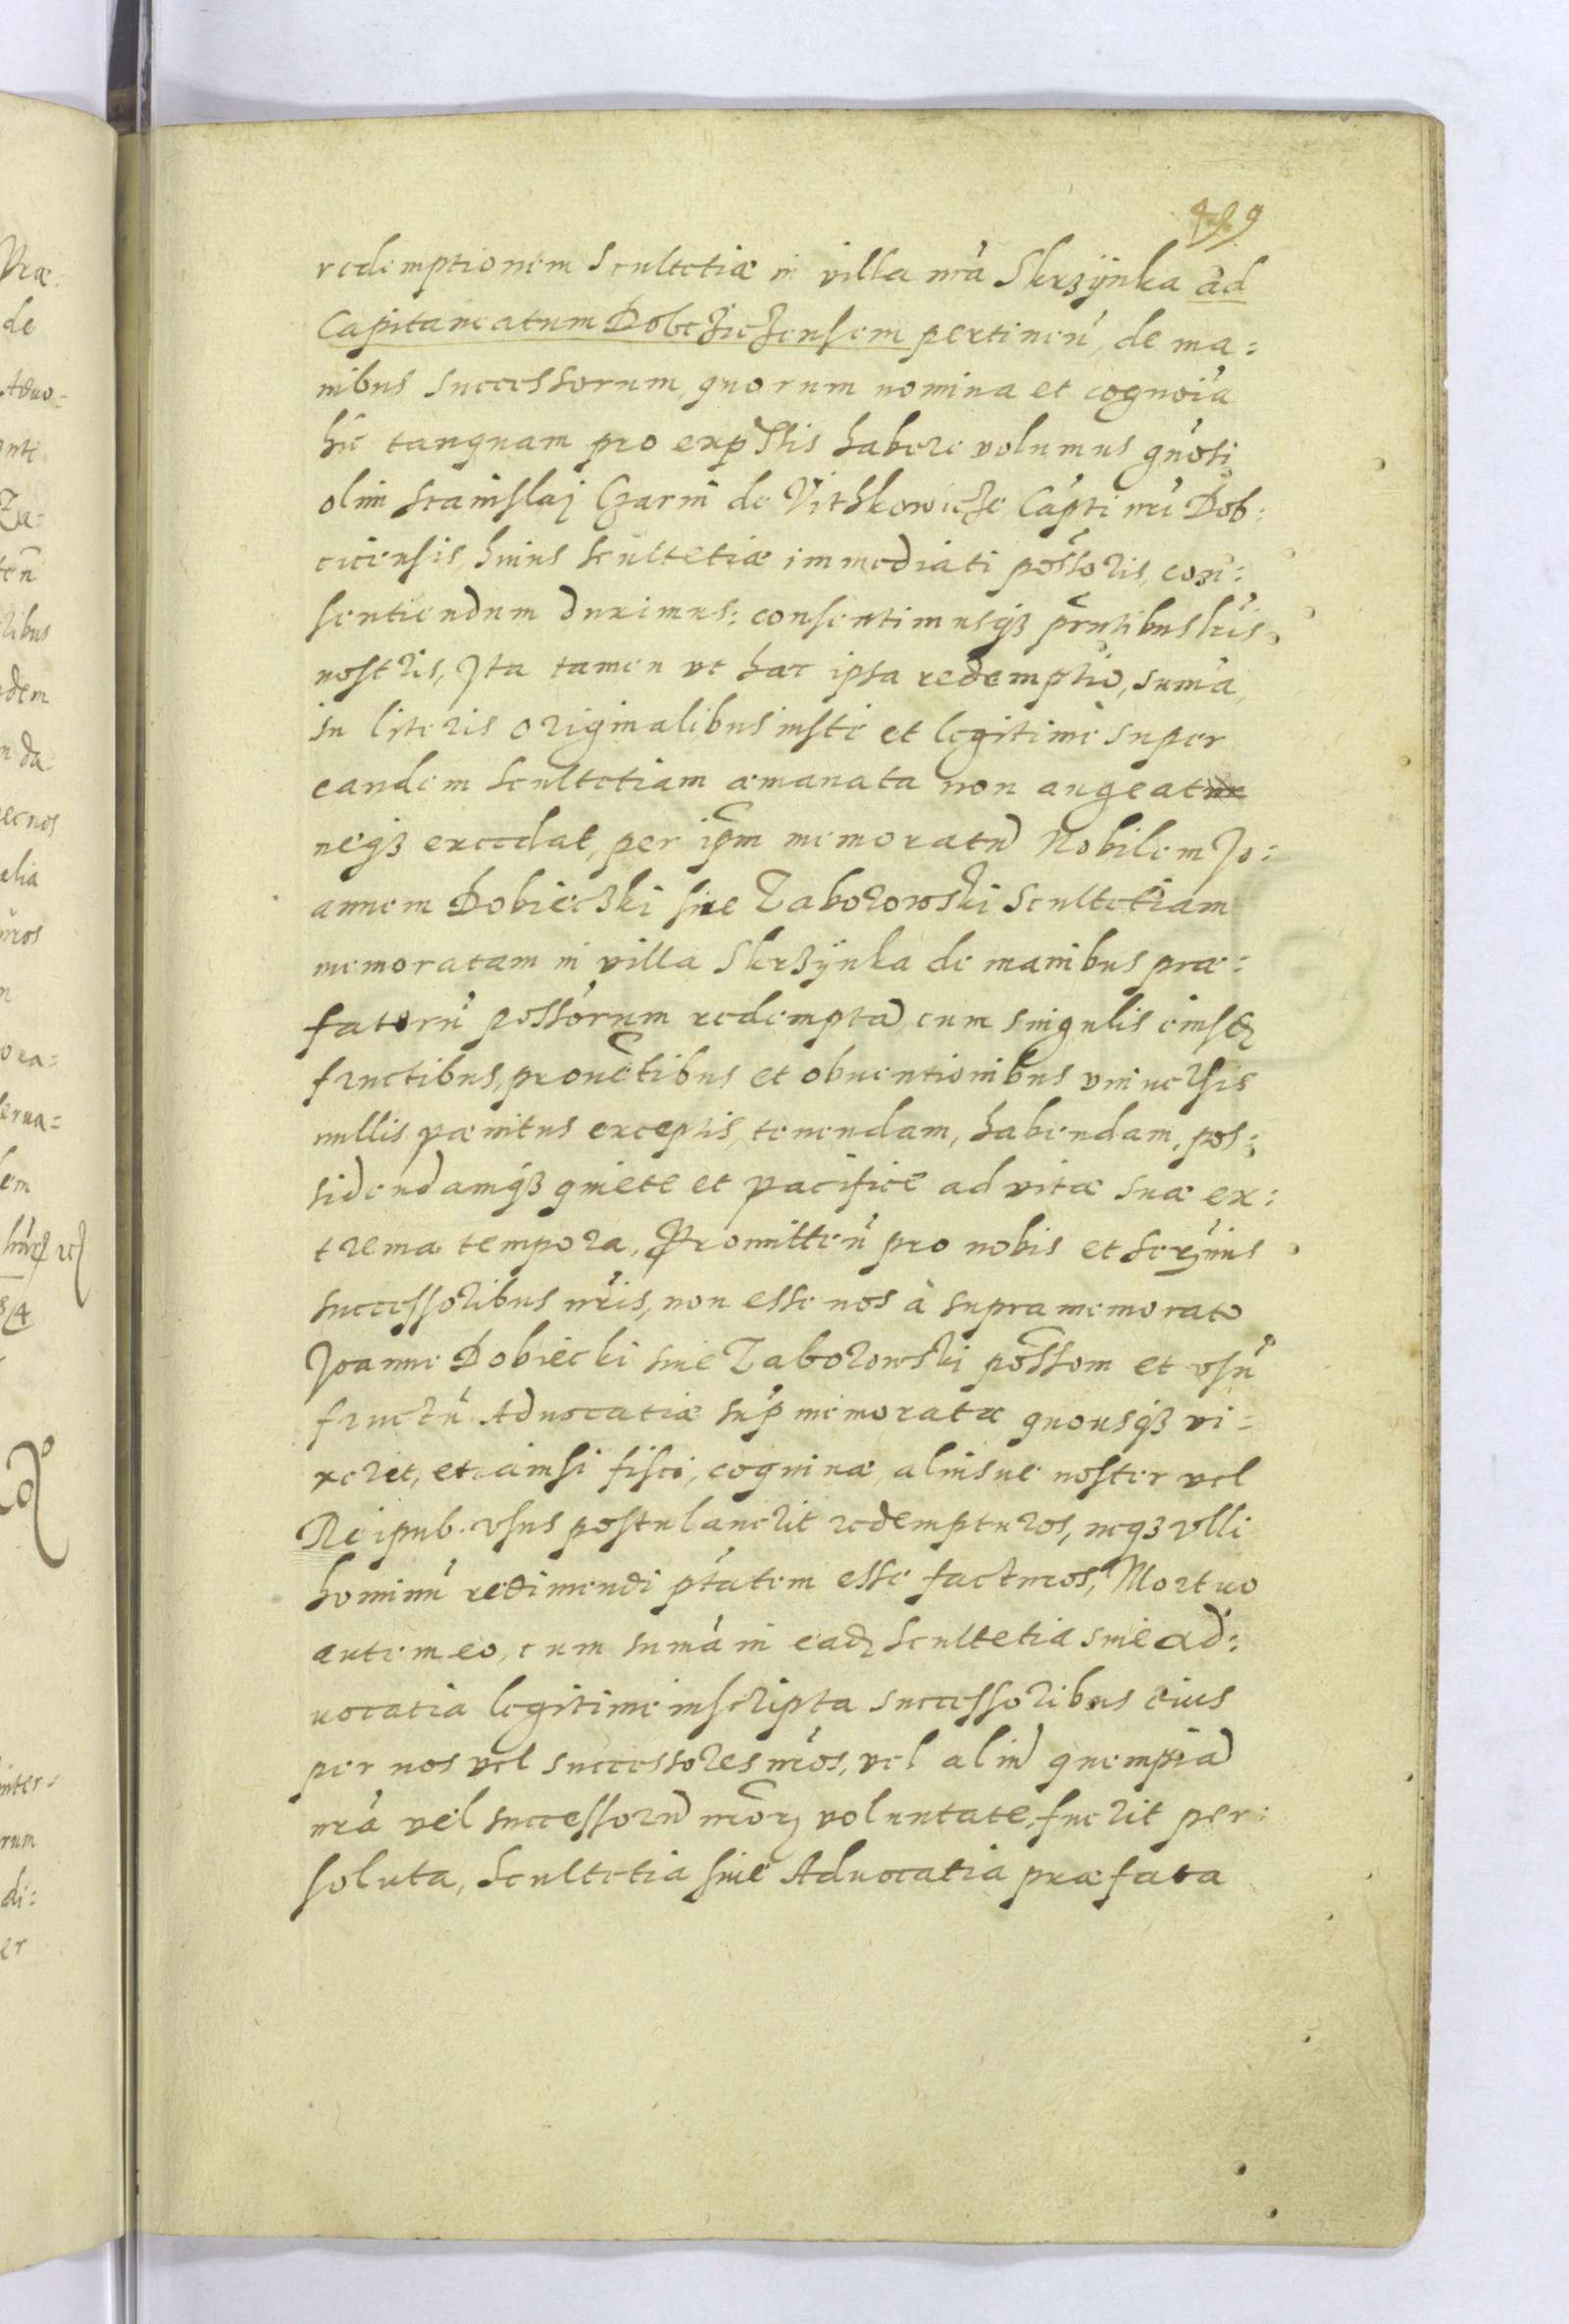 redemptionem Scultetiæ in villa nrã Skrzÿnka ad
Capitaneatum Dobcziczensem pertinen, de ma:
nibus successorum, quorum nomina et cognoia
hic tanquam pro exp̃ssis habere volumus gñosi
olim Stanislaj Czarni de Vithkowicze Capti nri Dob:
cicensis, huius Scultetiæ immediati possoris, con:
sentiendum duximus: consentimusqȝ pñtibus lris
nostris, Jta tamen vt hac ipsa redemptio, suma
in literis originalibus iuste et legitime super
eandem Scultetiam æmanata non augeatur
neqȝ excedat, per ipm memoratũ Nobilem Jo:
annem Dobieczki siue Zaborowski Scultetiam
memoratam in villa Skrzÿnka de manibus præ:
fatorũ possorum redemptã, cum singulis eiusdẽ
fructibus, prouentibus et obuentionibus vniuersis
nullis pænitus exceptis, tenendam, habendam, pos:
sidendamqȝ quiete et pacifice ad vitæ suæ ex:
trema tempora, Promitteñ pro nobis et Serũmis
successoribus nris, non esse nos à supra memorato
Joanne Dobiecki siue Zaborowski possom et vsũ
fructũ Aduocatiæ sup memoratæ quousqȝ vi:
xerit, etiamsi fisci, coquinæ, aliusue noster vel
Reipub. vsus postulauerit redempturos, neqȝ vlli
hominũ redimendi ptatem esse facturos, Mortuo
autem eo, cum suma in eadẽ Scultetia siue ad:
uocatia legitime inscripta successoribus eius
per nos vel successores nros, vel aliũ quempiã
nra vel successorũ nrorũ voluntate, fuerit per:
soluta, Scultetia siue Aduocatia præfata